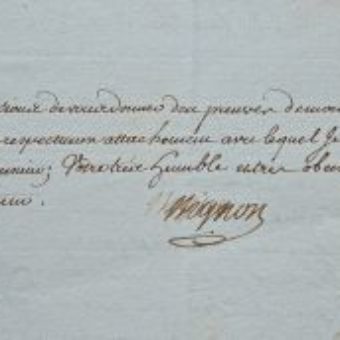 de vous donner des preuves de mon
respectueux attachement avec lequel Je
Votre très humble et très obei
Mégnon